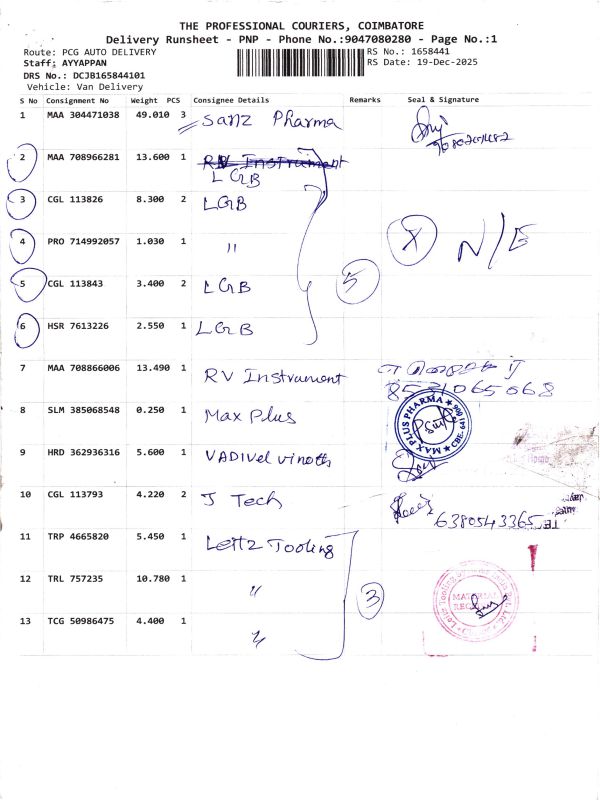 THE PROFESSIONAL COURIERS, COIMBATORE
Delivery Runsheet - PNP - Phone No.:9047080280 - Page No.:1
Route: PCG AUTO DELIVERY
RS No.: 1658441
Staff: AYYAPPAN
RS Date: 19-Dec-2025
DRS No.: DCJB165844101
Vehicle: Van Delivery
S No Consignment No Weight PCS Consignee Details Remarks Seal & Signature
1 MAA 304471038 49.010 3 Sanz Pharma
2 MAA 708966281 13.600 1 RV Instrument
LGB
3 CGL 113826 8.300 2 LGB
4 PRO 714992057 1.030 1 "
X N/E
5 CGL 113843 3.400 2 LGB 5
6 HSR 7613226 2.550 1 LGB
7 MAA 708866006 13.490 1 RV Instrument
8 SLM 385068548 0.250 1 Max Plus
MAX PLUS PHARMA
9 HRD 362936316 5.600 1 VADIVEL vinoth
10 CGL 113793 4.220 2 J Tech
6380543365
11 TRP 4665820 5.450 1 Leitz Tooling
12 TRL 757235 10.780 1 "
3
MATERIAL
13 TCG 50986475 4.400 1 "